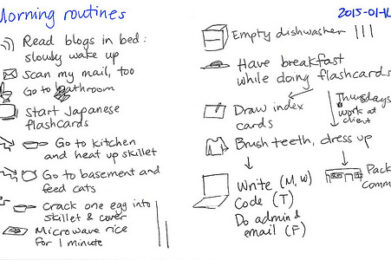 Morning routines
Read blogs in bed:
slowly wake up
Scan my mail, too
Go to bathroom
Start Japanese
flashcards
Go to kitchen
and heat up skillet
Go to basement and
feed cats
Crack one egg into
skillet & cover
Microwave rice
for 1 minute
2015-01-1
Empty dishwasher
Have breakfast
while doing flashcards
Draw index
cards
Thursdays
work at
client
Brush teeth, dress up
Write (M, W)
Code (T)
Do admin &
email (F)
Pack
Comm